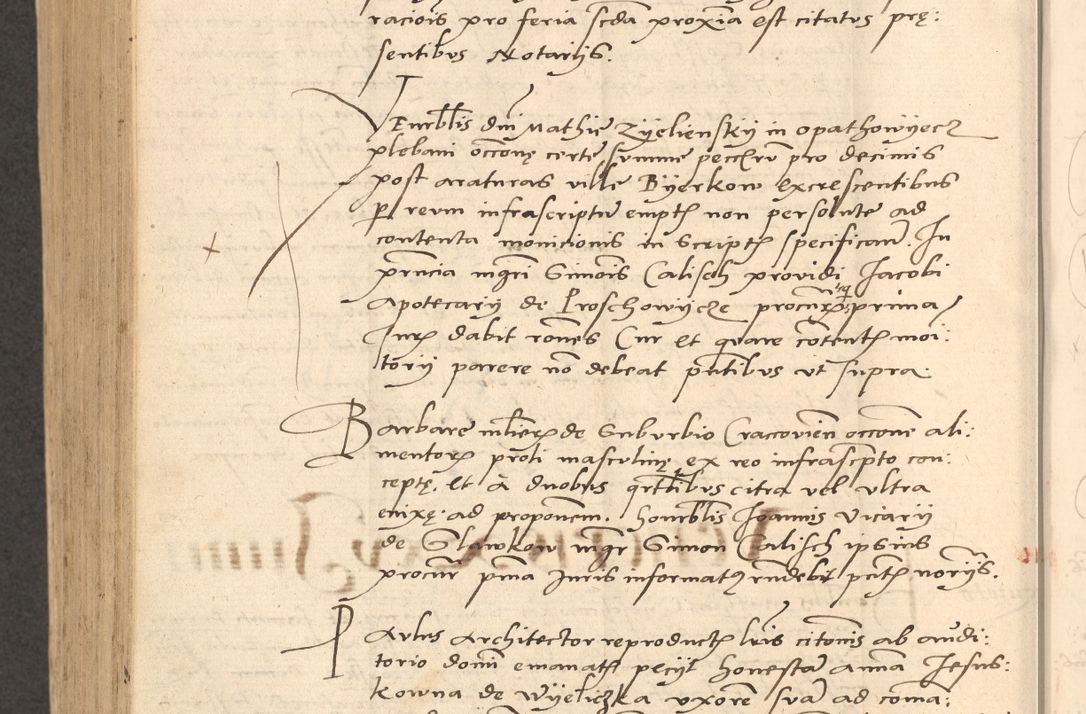 raciois pro feria scda proxia est citatus prę:
sentibus Notarijs.
Venrblis dni Mathie Zyelienskij in opathowijecz
plebani occone certe summe pecciaru pro decimis
post araturas ville Byerkow excrescentibus
p reum infrascriptu empt non persolute ad
contenta monicionis in script specifican. In
pncia mgri Simois Calisch providi Jacobi
Apotecarij de Proschowijcze procur prima
Jur dabit rones Cur et quare cotent moi:
torij parere no debeat pntibus ut supra.
Barbare mlier de Suburbio Cracovien occone ali:
mentor proli masculinę ex reo infrascpto con:
ceptę. Et a duobus citra vel ultra
enixę. ad proponem. honrblis Joannis Vicarij
de Slawkow mgr Simon Calisch ipsius
procur pma Juris informat rndebit pnt norijs.
Paulus Architector reproduct lris citonis ab audi:
torio domi emanat pecijt honesta anna Jesus:
kowna de Wyeliczka uxore sua ad coma: